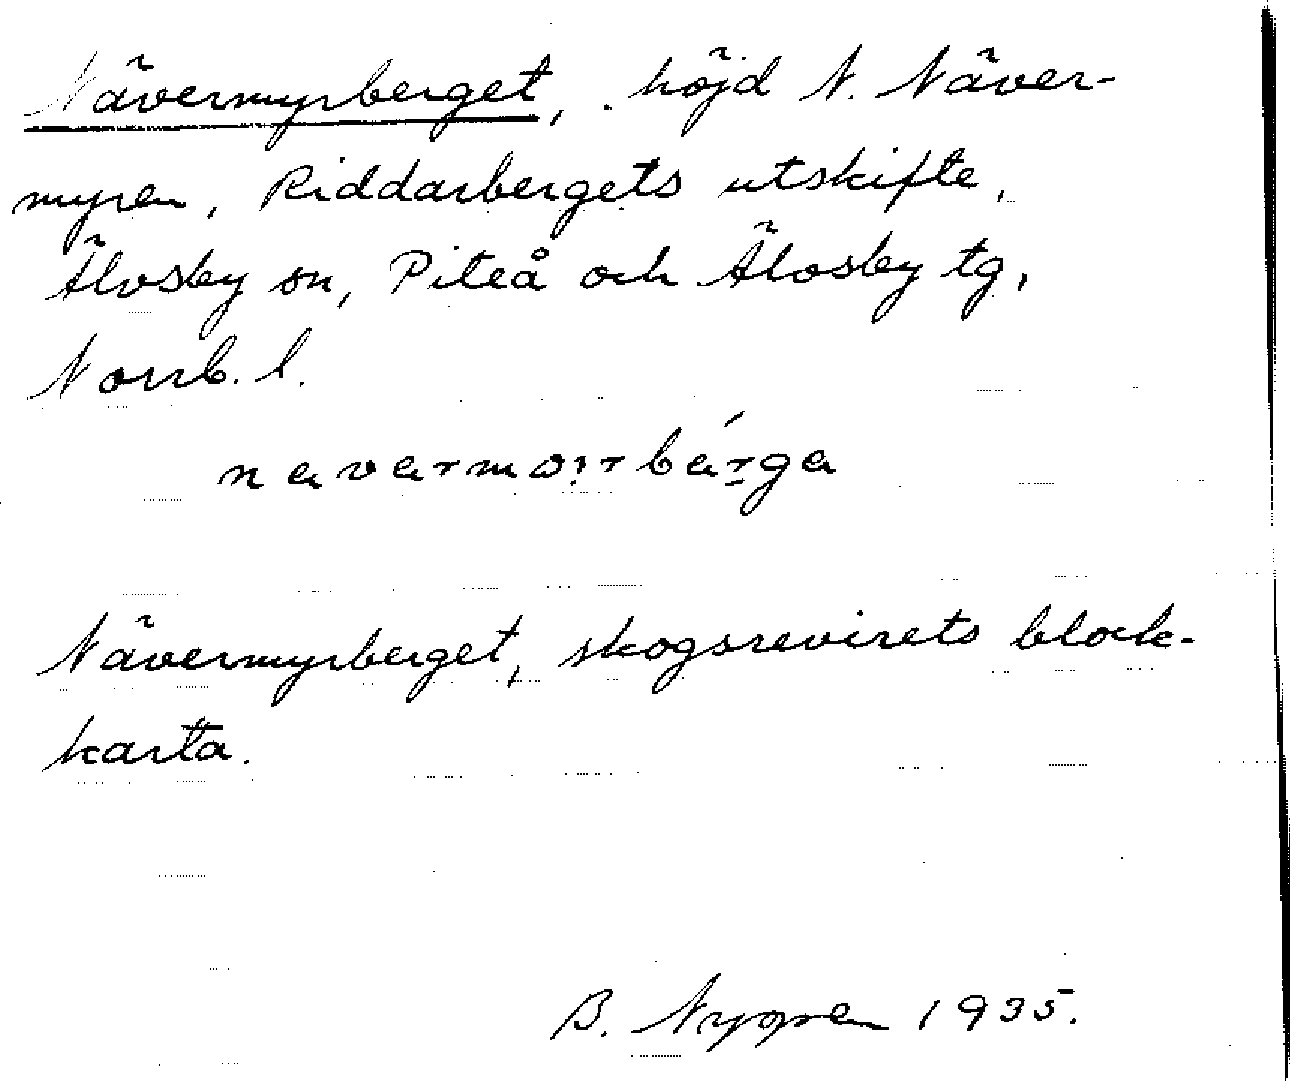 Nävermyrberget, höjd N. Näver-
myren, Riddarbergets utskifte,
Älvsby sn, Piteå och Älvsby tg,
Norrb. l.
Nävermyrberget, skogsrevirets block-
karta.
B. Nygren 1935.